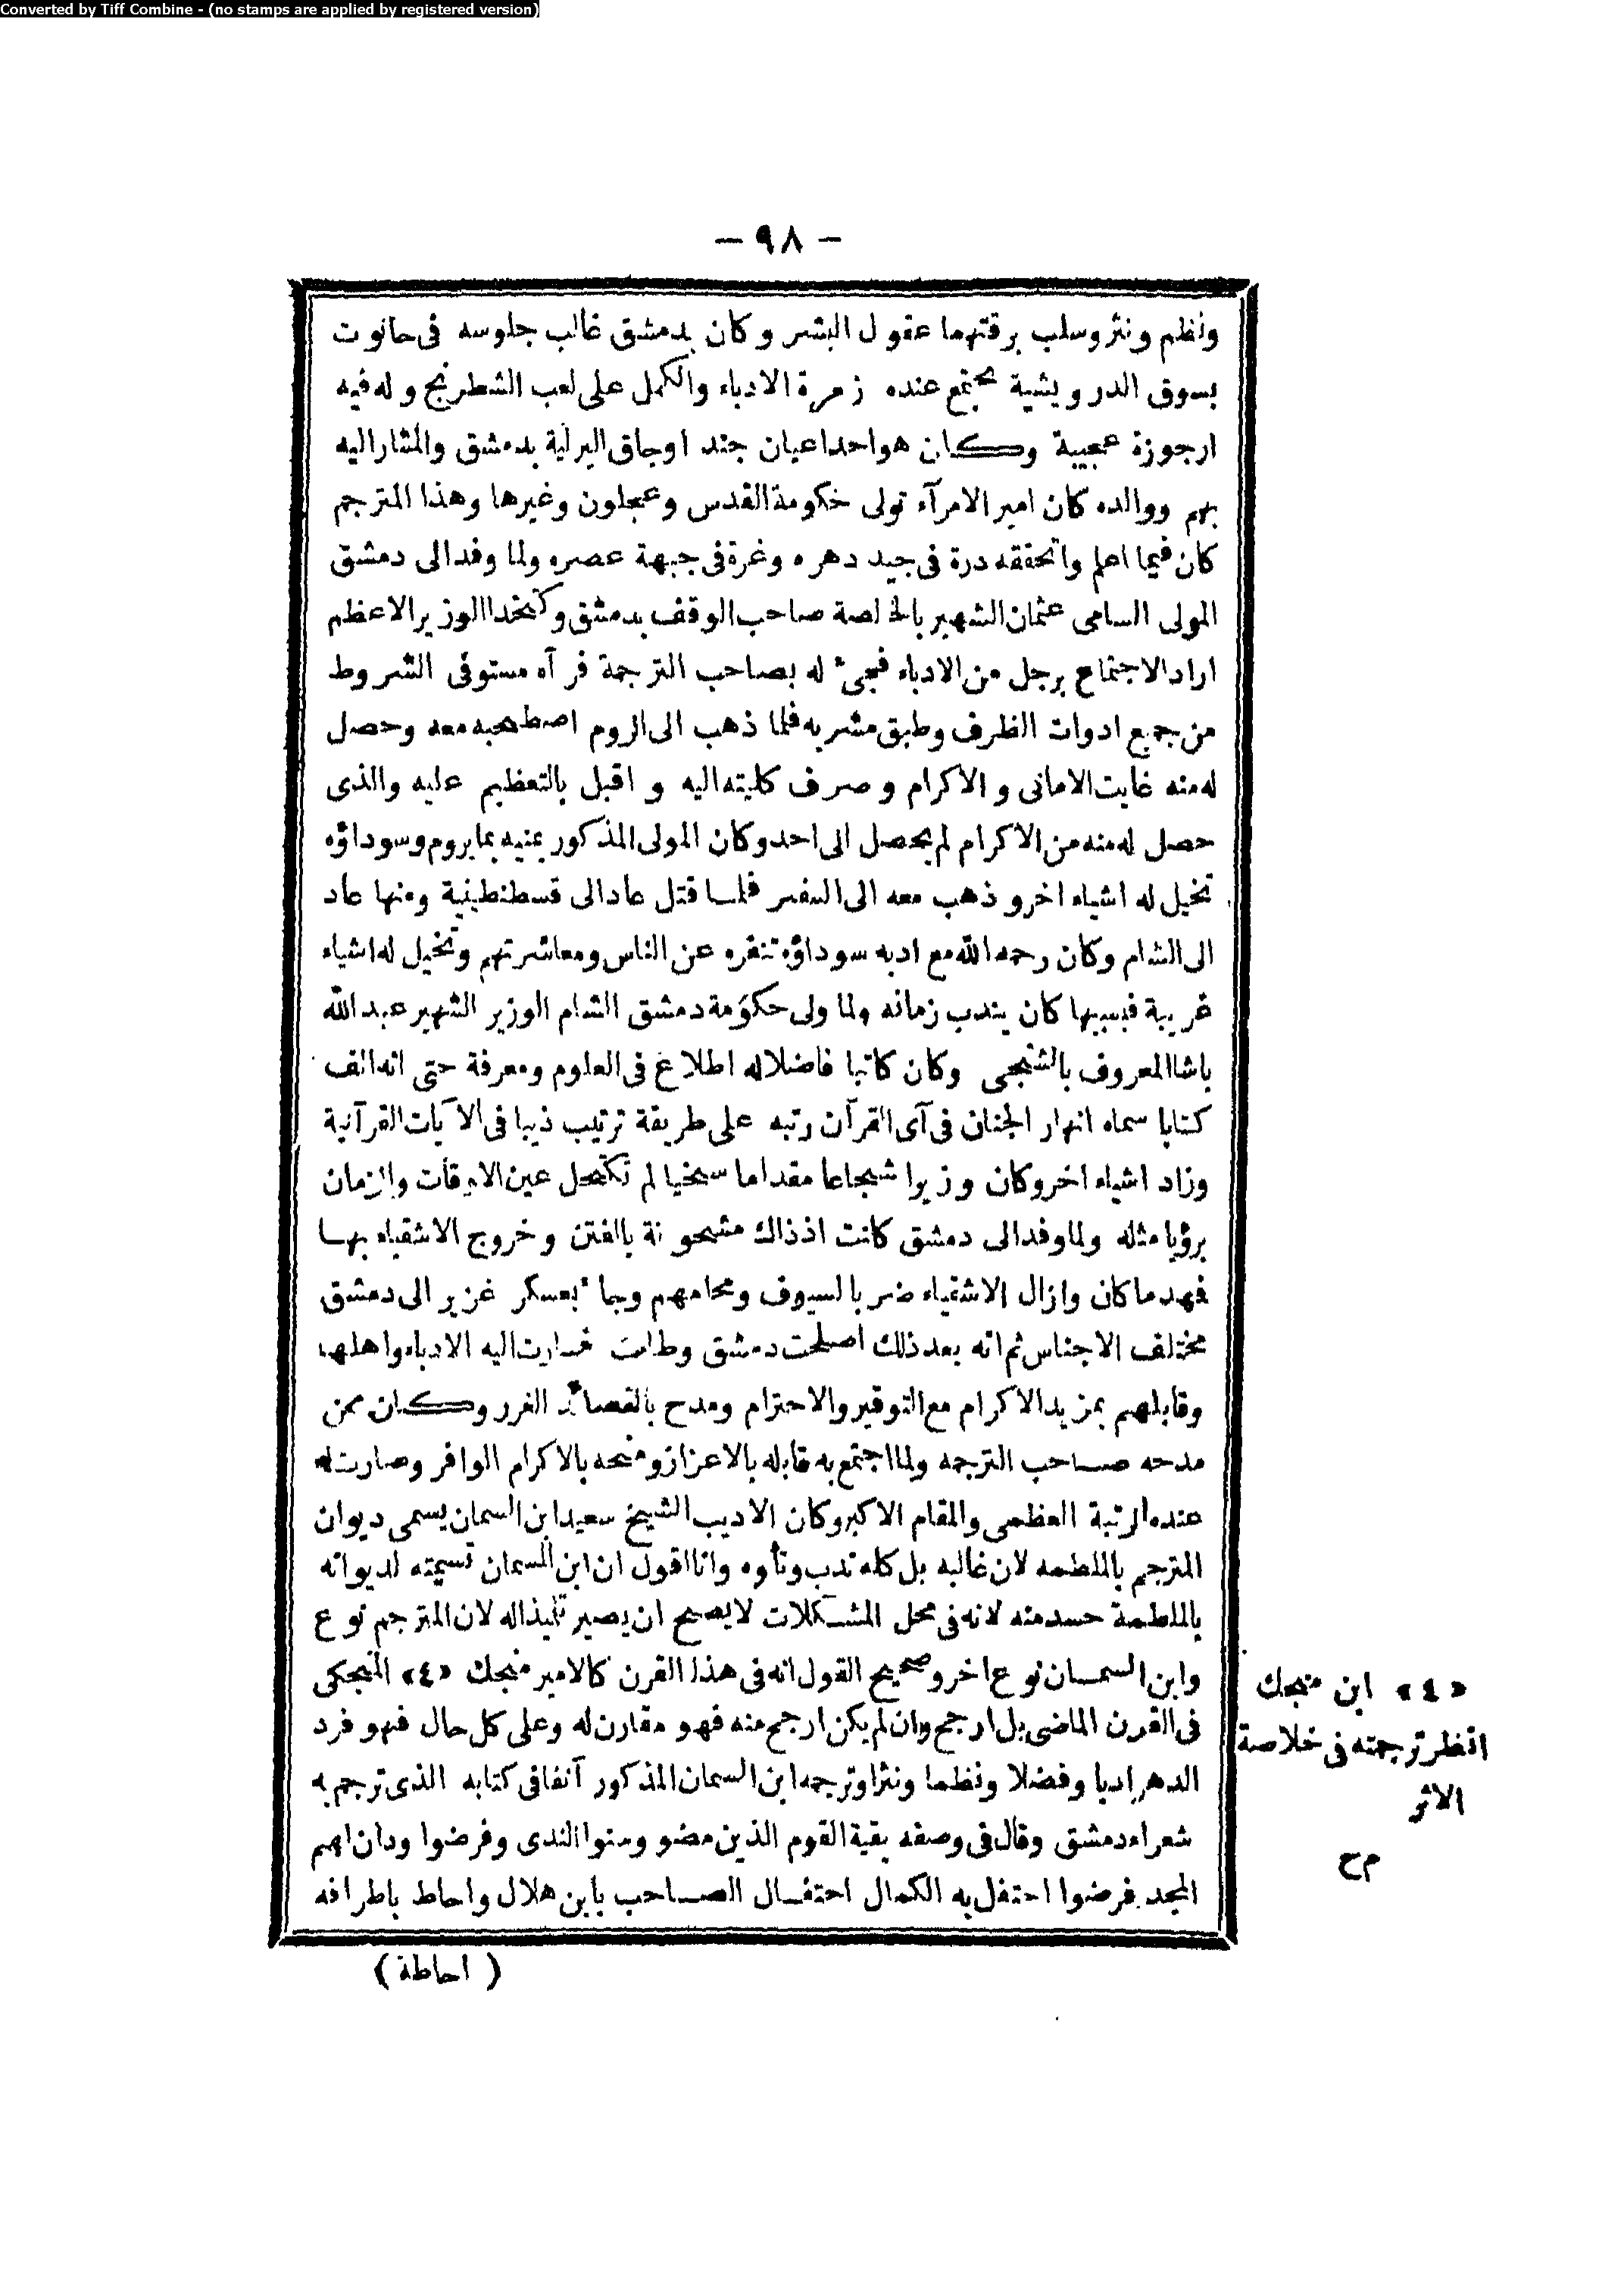 Converted by Tiff Combine - (no stamps are applied by registered version)
— ٩٨ —
ونظم ونثر وسلب برقتهما عقول البشر وكان بدمشق غالب جلوسه فى حانوت
بسوق الدرويشية يجتمع عنده زمرة الادباء والكمل على لعب الشطرنج وله فيه
ارجوزة عجيبة وكان هو احد اعيان جند اوجاق اليرلية بدمشق والمشار اليه
بهم ووالده كان امير الامرآء تولى حكومة القدس وعجلون وغيرها وهذا المترجم
كان فيما اعلم واتحققه درة فى جيد دهره وغرة فى جبهة عصره ولما وفد الى دمشق
المولى السامى عثمان الشهير بالخلصة صاحب الوقف بدمشق وكتخدا الوزير الاعظم
اراد الاجتماع برجل من الادباء فجىء له بصاحب الترجمة فرآه مستوفى الشروط
من جميع ادوات الظرف وطبق مشربه فلما ذهب الى الروم اصطحبه معه وحصل
له منه غايت الامانى والاكرام وصرف كليته اليه واقبل بالتعظيم عليه والذى
حصل له منه من الاكرام لم يحصل الى احد وكان المولى المذكور يمنيه بما يروم وسوداؤه
تخيل له اشياء اخر وذهب معه الى السفر فلما قتل عاد الى قسطنطينية ومنها عاد
الى الشام وكان رحمه الله مع ادبه سوداؤه تنفره عن الناس ومعاشرتهم وتخيل له اشياء
غريبة فبسببها كان يندب زمانه ولما ولى حكومة دمشق الشام الوزير الشهير عبد الله
باشا المعروف بالشتجى وكان كاتبا فاضلا له اطلاع فى العلوم ومعرفة حتى انه الف
كتابا سماه انهار الجنان فى آى القرآن رتبه على طريقة ترتيب ذيبا فى الآيات القرآنية
وزاد اشياء اخر وكان وزيرا شجاعا مقداما سخيا لم تكتحل عين الاوقات والزمان
برؤيا مثله ولما وفد الى دمشق كانت اذ ذاك مشحونة بالفتن وخروج الاشقياء بها
فهد ما كان وازال الاشقياء ضربا لسيوف ومحامهم وجاء بعسكر غزير الى دمشق
مختلف الاجناس ثم انه بعد ذلك اصلحت دمشق وطابت فصارت اليه الادباء واهلها
وقابلهم بمزيد الاكرام مع التوقير والاحترام ومدح بالقصائد الغرر وكان ممن
مدحه صاحب الترجمه ولما اجتمع به قابله بالاعزاز ومنحه بالاكرام الوافر وصارت له
عنده الرتبة العظمى والمقام الاكبر وكان الاديب الشيخ سعيد ابن السمان يسمى ديوان
المترجم باللطمه لان غالبه بل كله ندب وتأوه وانا اقول ان ابن السمان تسميته لديوانه
باللطمة حسد منه لانه فى محل المشكلات لا يصح ان يصير تلميذا له لان المترجم نوع
وابن السمان نوع اخر وصحيح القول انه فى هذا القرن كالامير منجك «٤» المنجكى
فى القرن الماضى بل ارجح وان لم يكن ارجح منه فهو مقارن له وعلى كل حال فهو فرد
الدهر ادبا وفضلا ونظما ونثرا وترجمه ابن السمان المذكور آنفا فى كتابه الذى ترجم به
شعراء دمشق وقال فى وصفه بقية القوم الذين مضو وسنوا الندى وفرضوا ودان لهم
المجد فرضوا احتفل به الكمال احتفال الصاحب بابن هلال واحاط باطرافه
( احاطة )
«٤» ابن منجك
انظر ترجمته فى خلاصة
الاثر
م ح